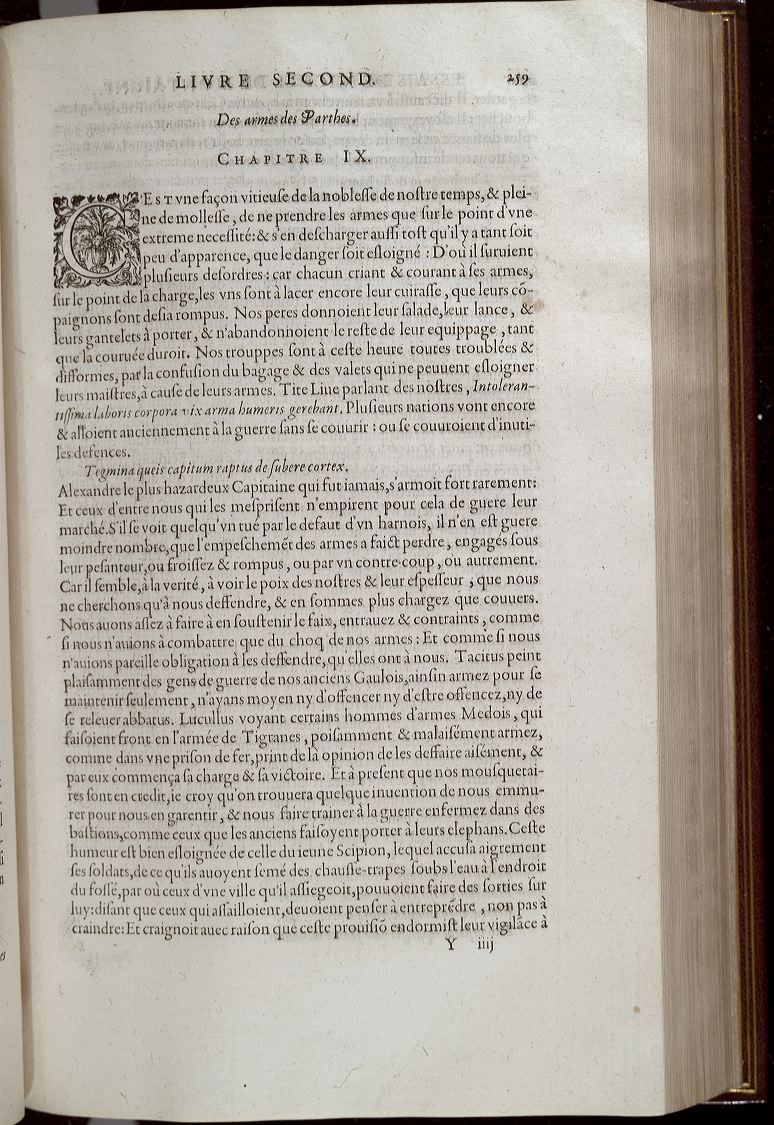 LIVRE SECOND. 259
Des armes des Parthes.
CHAPITRE IX.
C'EST vne façon vitieuſe de la nobleſſe de noſtre temps, & plei-
ne de molleſſe, de ne prendre les armes que ſur le point d'vne
extreme neceſſité: & s'en deſcharger auſſi toſt qu'il y a tant ſoit
peu d'apparence, que le danger ſoit eſloigné : D'où il ſuruient
pluſieurs deſordres : car chacun criant & courant à ſes armes,
ſur le point de la charge, les vns ſont à lacer encore leur cuiraſſe, que leurs cõ-
paignons ſont deſia rompus. Nos peres donnoient leur ſalade, leur lance, &
leurs gantelets à porter, & n'abandonnoient le reſte de leur equippage, tant
que la couruée duroit. Nos trouppes ſont à ceſte heure toutes troublées &
difformes, par la confuſion du bagage & des valets qui ne peuuent eſloigner
leurs maiſtres, à cauſe de leurs armes. Tite Liue parlant des noſtres, Intoleran-
tiſſima laboris corpora vix arma humeris gerebant. Pluſieurs nations vont encore
& alloient anciennement à la guerre ſans ſe couurir : ou ſe couuroient d'inuti-
les defences.
Tegmina queis capitum raptus de ſubere cortex.
Alexandre le plus hazardeux Capitaine qui fut iamais, s'armoit fort rarement:
Et ceux d'entre nous qui les meſpriſent n'empirent pour cela de guere leur
marché. S'il ſe voit quelqu'vn tué par le defaut d'vn harnois, il n'en eſt guere
moindre nombre, que l'empeſchemẽt des armes a faict perdre, engagés ſous
leur peſanteur, ou froiſſez & rompus, ou par vn contre-coup, ou autrement.
Car il ſemble, à la verité, à voir le poix des noſtres & leur eſpeſſeur, que nous
ne cherchons qu'à nous deffendre, & en ſommes plus chargez que couuers.
Nous auons aſſez à faire à en ſouſtenir le faix, entrauez & contraints, comme
ſi nous n'auions à combattre que du choq de nos armes : Et comme ſi nous
n'auions pareille obligation à les deffendre, qu'elles ont à nous. Tacitus peint
plaiſamment des gens de guerre de nos anciens Gaulois, ainſin armez pour ſe
maintenir ſeulement, n'ayans moyen ny d'offencer ny d'eſtre offencez, ny de
ſe releuer abbatus. Lucullus voyant certains hommes d'armes Medois, qui
faiſoient front en l'armée de Tigranes, poiſamment & malaiſément armez,
comme dans vne priſon de fer, print de là opinion de les deffaire aiſément, &
par eux commença ſa charge & ſa victoire. Et à preſent que nos mouſquetai-
res ſont en credit, ie croy qu'on trouuera quelque inuention de nous emmu-
rer pour nous en garentir, & nous faire trainer à la guerre enfermez dans des
baſtions, comme ceux que les anciens faiſoyent porter à leurs elephans. Ceſte
humeur eſt bien eſloignée de celle du ieune Scipion, lequel accuſa aigrement
ſes ſoldats, de ce qu'ils auoyent ſemé des chauſſe-trapes ſoubs l'eau à l'endroit
du foſſé, par où ceux d'vne ville qu'il aſſiegeoit, pouuoient faire des ſorties ſur
luy: diſant que ceux qui aſſailloient, deuoient penſer à entreprẽdre, non pas à
craindre: Et craignoit auec raiſon que ceſte prouiſiõ endormiſt leur vigilãce à
Y iiij